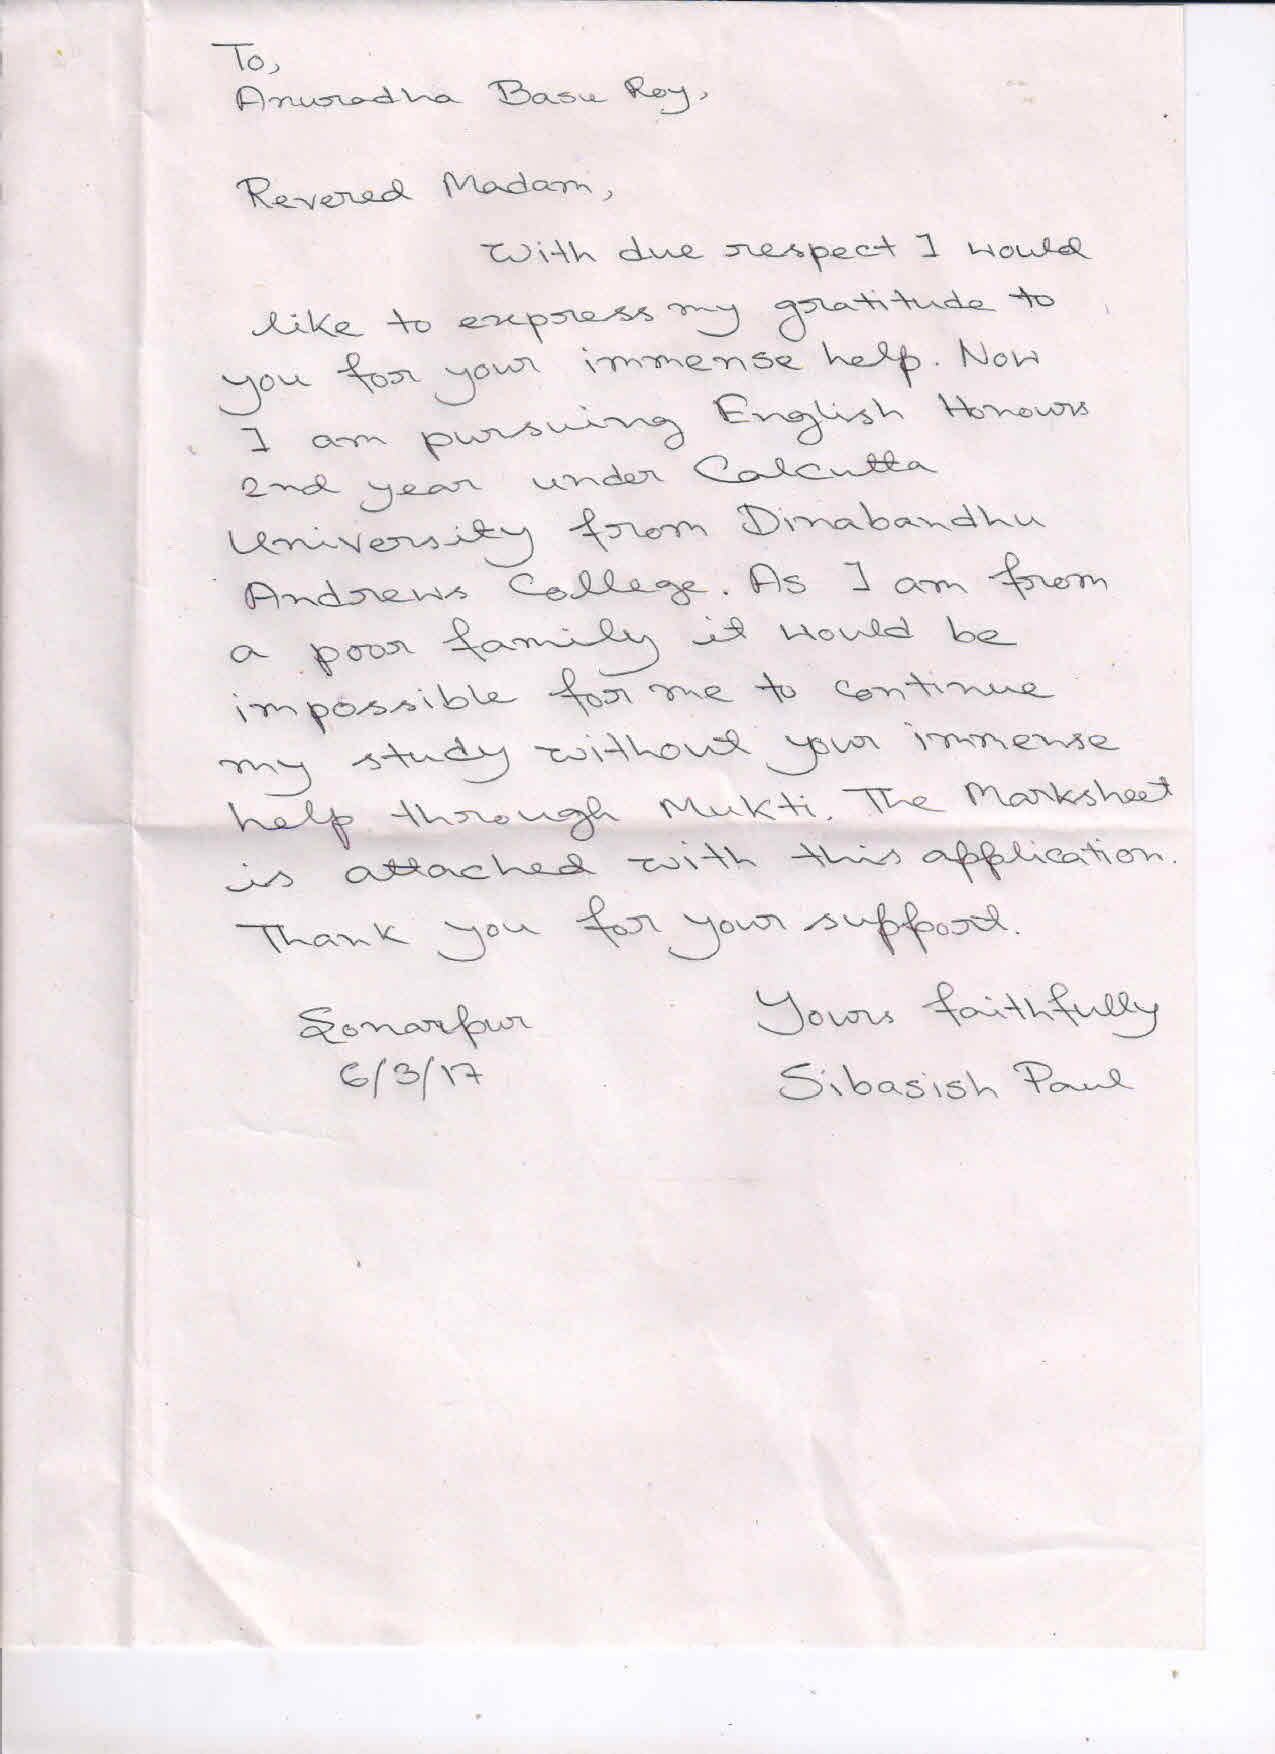 To,
Anuradha Basu Roy,
Revered Madam,
With due respect I would
like to express my gratitude to
you for your immense help. Now
I am pursuing English Honours
2nd year under Calcutta
University from Dinabandhu
Andrews College. As I am from
a poor family it would be
impossible for me to continue
my study without your immense
help through Mukti. The Marksheet
is attached with this application.
Thank you for your support.
Sonarpur
6/3/17
Yours faithfully
Sibasish Paul